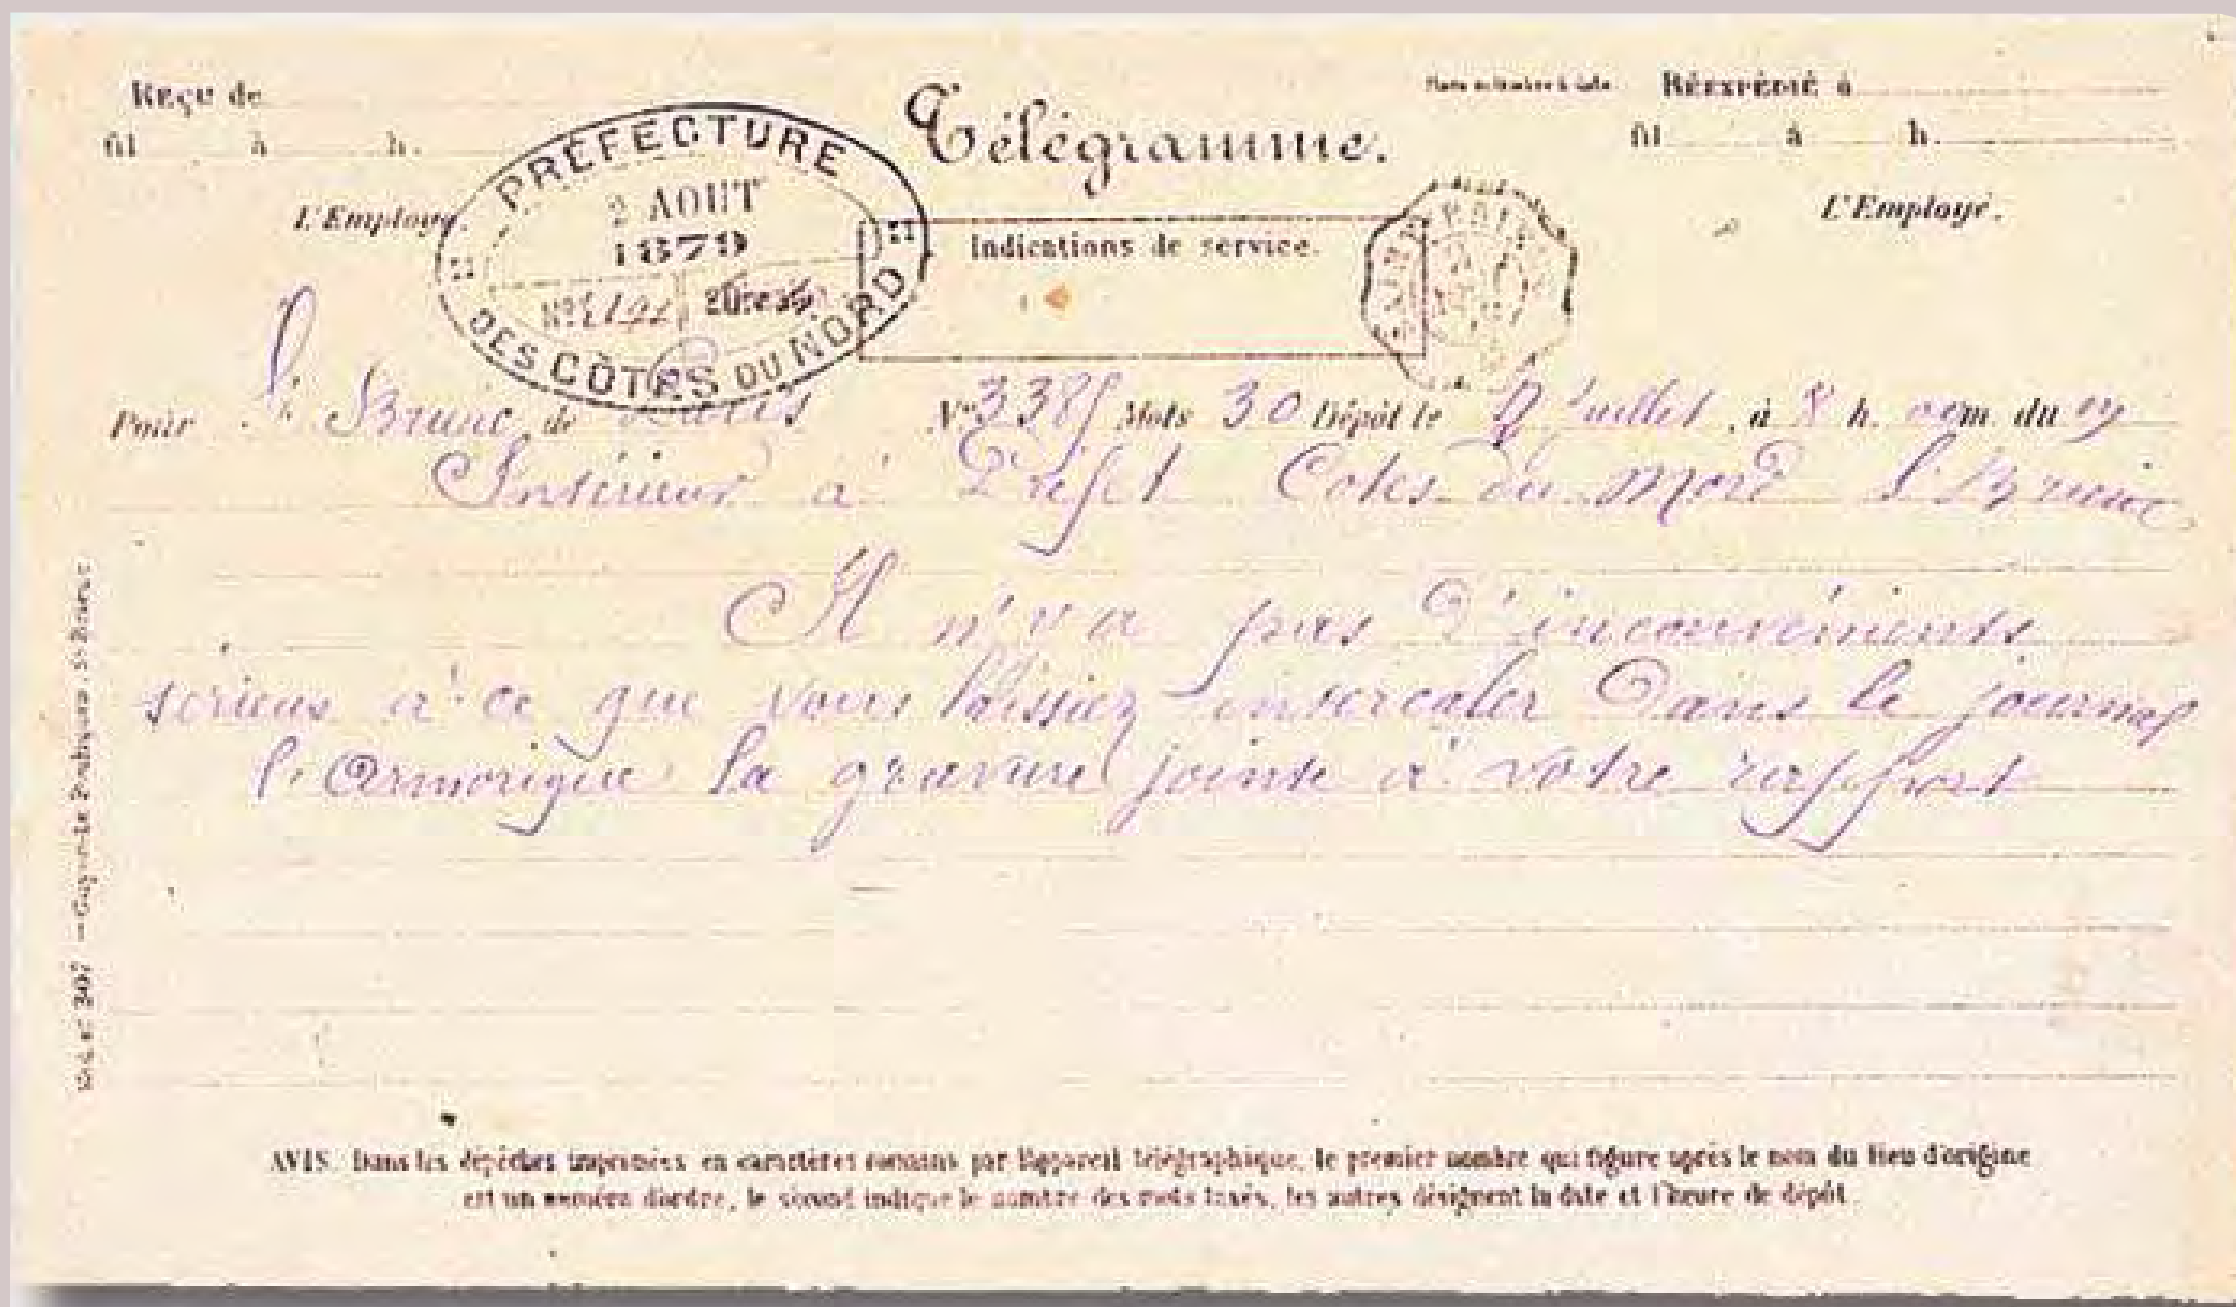 Reçu de
fil à h.
L'Employé.
PRÉFECTURE
2 AOUT
1879
DES CÔTES DU NORD
Télégramme.
Indications de service.
RÉEXPÉDIÉ à
fil à h.
L'Employé.
Pour St Brieuc de Paris N° 3385 Mots 30 Dépôt le juillet, à 8 h. m. du
Intérieur à Préfet Cotes du Nord St Brieuc
Il n'y a pas d'inconvénients
serieux à ce que vous laissiez intercaler dans le journal
l'Armorique la gravure jointe à votre rapport
AVIS. Dans les dépêches imprimées en caractères romains par l'appareil télégraphique, le premier nombre qui figure après le nom du lieu d'origine
est un numéro d'ordre, le second indique le nombre des mots taxés, les autres désignent la date et l'heure de dépôt.